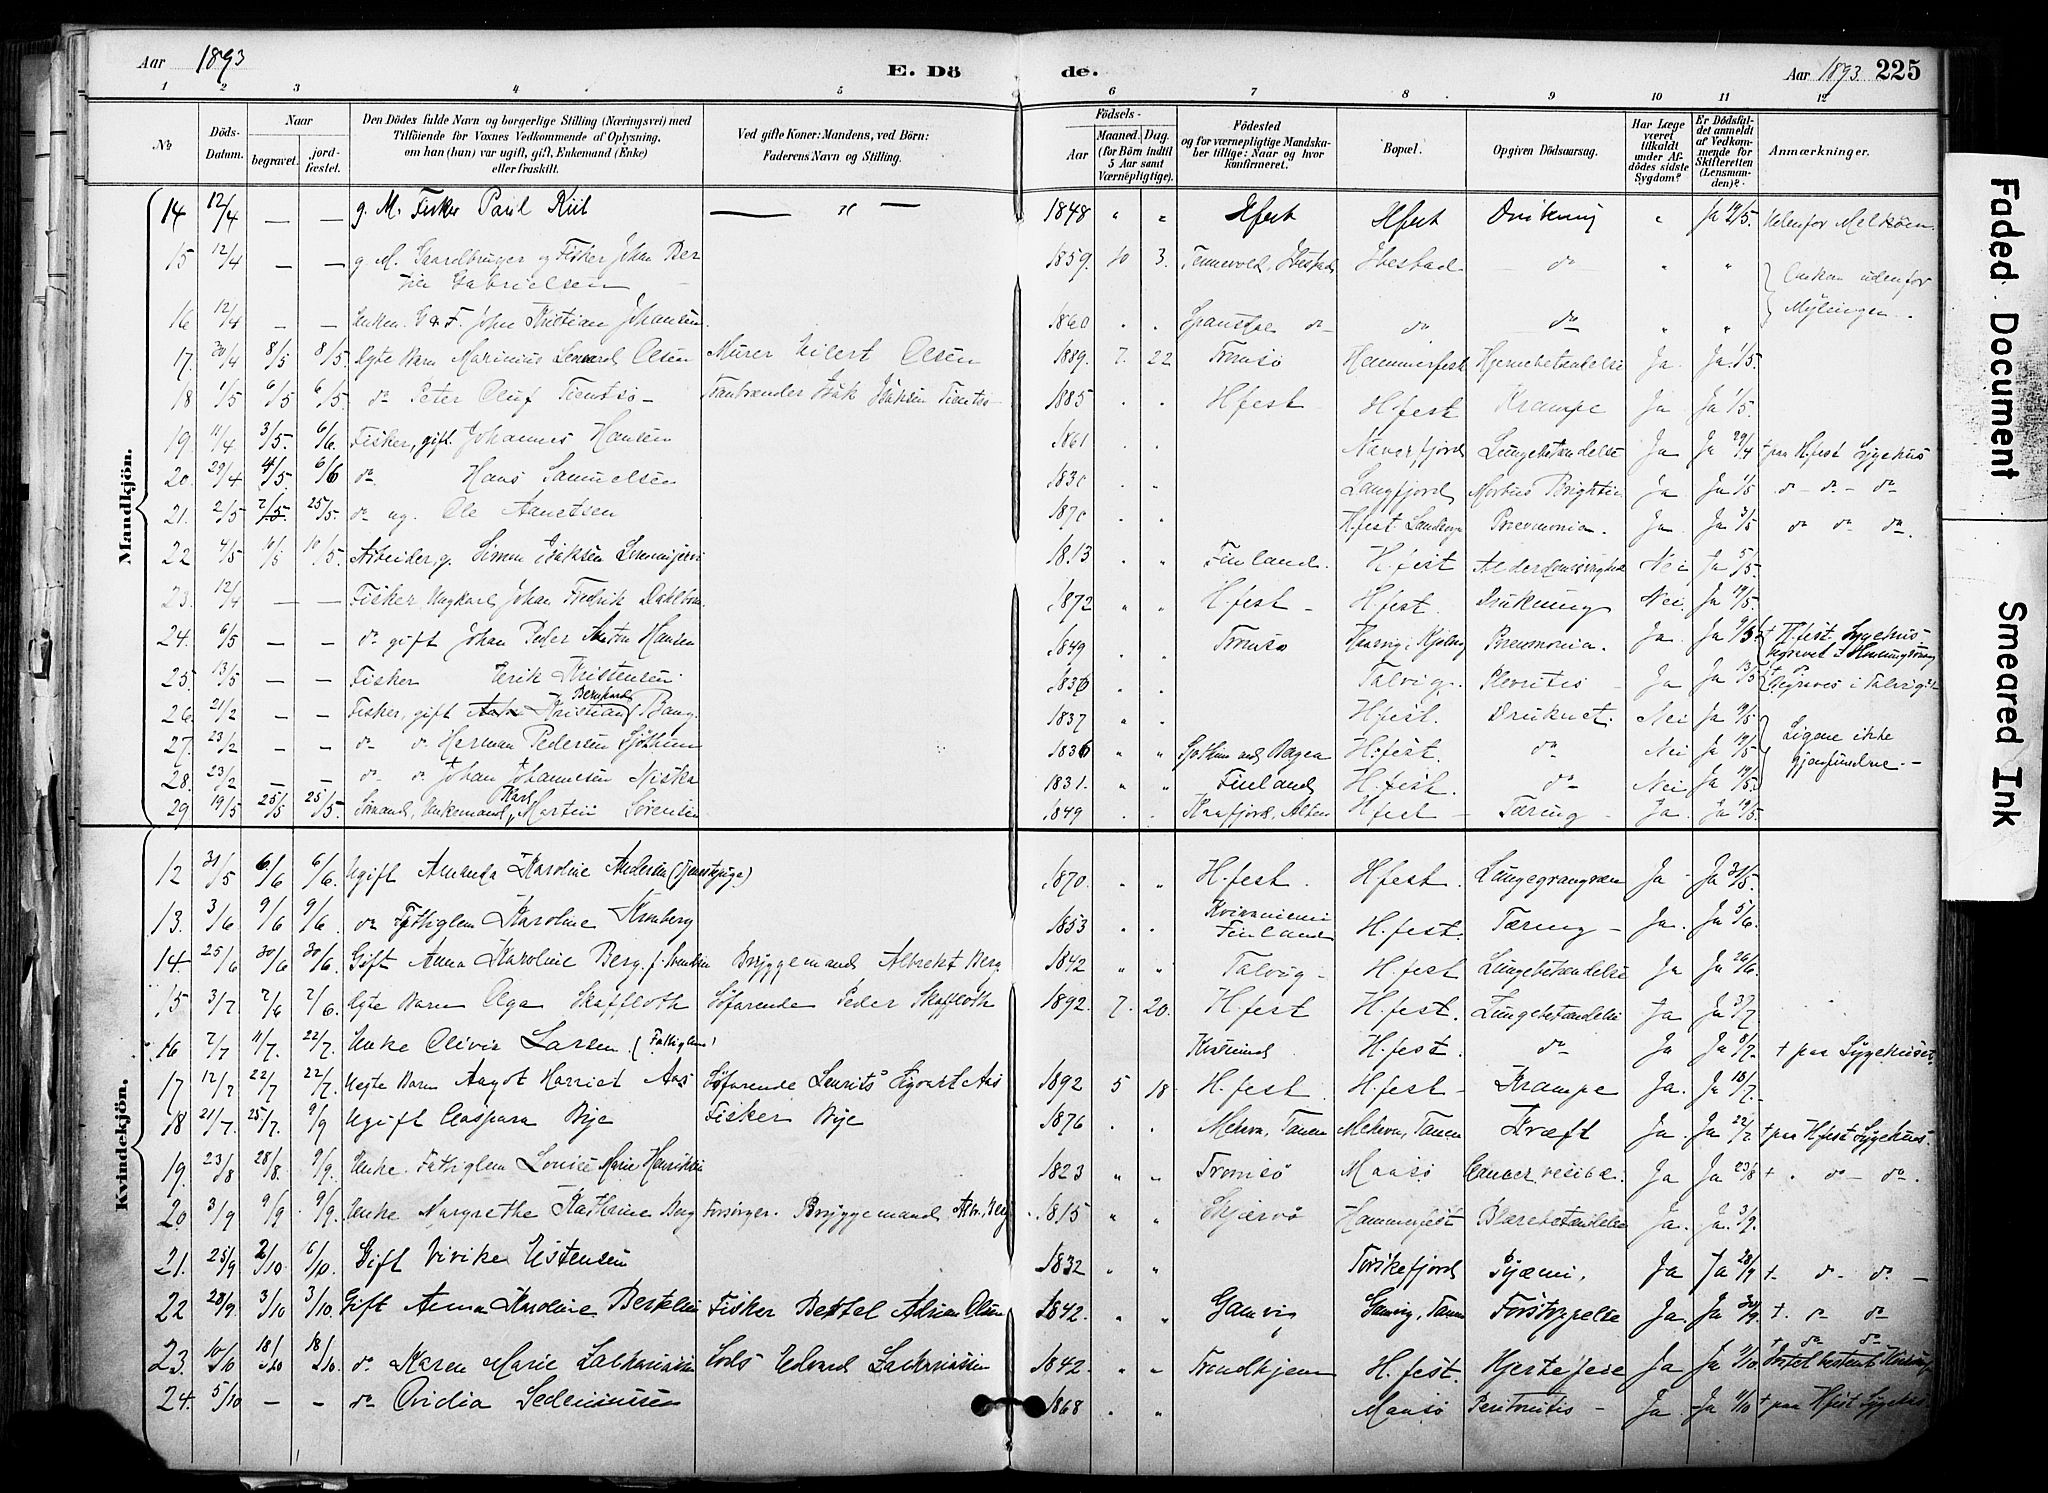 Aar 1893
E. Dö
de.
Aar 1893. 225
1 2 3 4 5 6 7 8 9 10 11 12
No
Döds-
Datum.
Naar
begravet.
jord-
fæstet.
Den Dödes fulde Navn og borgerlige Stilling (Næringsvei) med
Tilföiende for Voxnes Vedkommende af Oplysning,
om han (hun) var ugift, gift, Enkemand (Enke)
eller fraskilt.
Ved gifte Koner: Mandens, ved Börn:
Faderens Navn og Stilling.
Födsels-
Aar
Maaned. Dag.
(for Börn indtil
5 Aar samt
Værnepligtige).
Födested
og for værnepligtige Mandska-
ber tillige: Naar og hvor
konfirmeret.
Bopæl.
Opgiven Dödsaarsag.
Har Læge
været
tilkaldt
under Af-
dödes sidste
Sygdom?
Er Dödsfal-
det anmeldt
af Vedkom-
mende for
Skifteretten
(Lensman-
den)?
Anmærkninger.
Mandkjön.
14 12/4 — — g. M. Fisker Paul Kiil — " — 1848 " " Hfest Hfest Drukning " Ja 19/5. Udenfor Melkøen
15 12/4 — — g. M. Gaardbruger og Fisker Johan Ber
Gabrielsen 1859. 10 3. Tennevold, Ibestad Ibestad do " " udenfor
16 12/4 — — Unkm. G & F. John Kristian Johansen. 1860 " " do do do " " Mylingen.
17. 30/4 8/5 8/5 Ægte Barn Marinius Leonard Olsen Murer Eilert Olsen 1889. 7. 22 Tromsø Hammerfest Hjernebetændelse Ja. Ja 1/5.
18 1/5 6/5 6/5. do Peter Oluf Tientsø — Tranbrænder Isak Isaksen Tientsø 1885 " " Hfest H.fest Krampe Ja Ja 1/5.
19. 11/4 3/5. 6/6. Fisker, gift. Johannes Hansen 1861 " " Naverfjord Lungebetændelse Ja Ja 29/4 + paa H.fest Sygehus
20. 29/4 4/5. 6/6 do Hans Samuelsen 1830 " " Langfjord Morbus Brightii Ja Ja 1/5 do — do — do
21. 2/5 7/5. 25/5. do ug. Ole Aanetsen 1870 " " Hfest Landsogn Pneumonia. Ja. Ja 3/5 do do do.
22 4/5 10/5 10/5. Arbeider, g. Simon Isaksen 1813 " " Finland. H.fest Alderdomssvaghed Nei Ja 5/5.
23. 12/4 — — Fisker Ungkarl Johan Fredrik Dahlbom. 1872 " " H.fest — H.fest. Drukning Nei. Ja 19/5.
24. 6/5 — — do gift Johan Peder Anton Hansen 1849 " " Tromsø Pneumonia. Ja. Ja 9/5 + H.fest Sygehus.
begravet i Honningsvaag
25. 13/5 — — Fisker Erik Kristensen 1836 " " Talvig. Plevritis — Ja Ja 13/5 + do Begraves i Talvig
26. 21/2 — — Fisker, gift Kristian Bernhard Bang. 1837 " " H.fest. Druknet. Nei Ja 19/5
27. 23/2 — — do do Herman Pedersen Sjøthun 1836 " " H.fest. do Nei Ja 19/5 Ligene ikke
28. 23/2 — — do do Johan Johannesen Niska 1831. " " Finland H.fest. do Nei Ja 19/5. gjenfundne. —
29 19/5 25/5 25/5. Sømand, Enkemand, Karl Martin Sørensen 1849 " " Kaafjord, Alten H.fest — Tæring — Ja. Ja 19/5.
Kvindekjön.
12 31/5 6/6 6/6. Ugift Amanda Karoline Andersen (Tjenestepige) 1870. " " H.fest. Hfest. Lungegrangræn Ja — Ja 31/5.
13. 3/6 9/6 9/6. do Fattiglem Karoline Kronberg 1853 " " Kvivaniemi
Finland H.fest. Tæring — Ja. Ja 5/6.
14. 25/6 30/6 30/6. Gift Anna Karoline Berg f. Svendsen Bryggemand Albrekt Berg. 1842 " " Talvig — H.fest Lungebetændelse Ja Ja 26/6.
15 3/7 7/6 7/6. Ægte Barn Olga Skaffloth Søfarende Peder Skaffloth 1892 7. 20. H.fest H.fest. Lungebetændelse Ja Ja 3/7
16 7/7 11/7. 22/7. Enke Olivia Larsen. (Fattiglem) H.fest. do Ja Ja 8/7. + paa Sygehuset
17 12/7 22/7 22/7. Uegte Barn Aagot Harriet Aas Søfarende Laurits Sigvart Aas 1892 5 18 H.fest. H.fest — Krampe Ja. Ja 18/7.
18 21/7. 25/7. 9/9 Ugift Caspara Bye Fisker Bye 1876 " " Mehavn, Tanen Mehavn, Tanen Kræft Ja. Ja 22/7 + paa Hfest Sygehus.
19. 23/8 28/8. 9/9. Enke. Fattiglem Lovise Marie Henriksen 1823 " " Tromsø Maasø Cancer vesicæ. Ja Ja 23/8 + . do — do.
20 3/9 9/9 9/9. Enke Margrethe Katharine Berg Forsørger. Bryggemand Albr. Berg 1815 " " Skjærvø Hammerfest Blærebetændelse Ja. Ja. 3/9.
21. 25/9 2/10 6/10. Gift Vivike Estensen 1832 " " Torskefjord Pyæmi. Ja Ja 28/9 + — do — do —
22 28/9. 3/10 3/10. Gift Anna Karoline Bertelsen Fisker Bertel Adrian Olsen 1842. " " Gamvig Gamvig, Tanen Forstoppelse Ja. Ja 30/9. + . do do
23. 10/10 18/10 18/10. do Karen Marie Zakariassen Lods Edvard Zakariassen 1842 " " Trondhjem H.fest. Hjertefeil Ja Ja 11/10. + do do
24. 5/10 — — do Ovidia Sedeniussen 1868 " " Maasø Peritonitis — Ja. Ja 11/10 + paa Hfest Sygehus
Faded Document
Smeared Ink